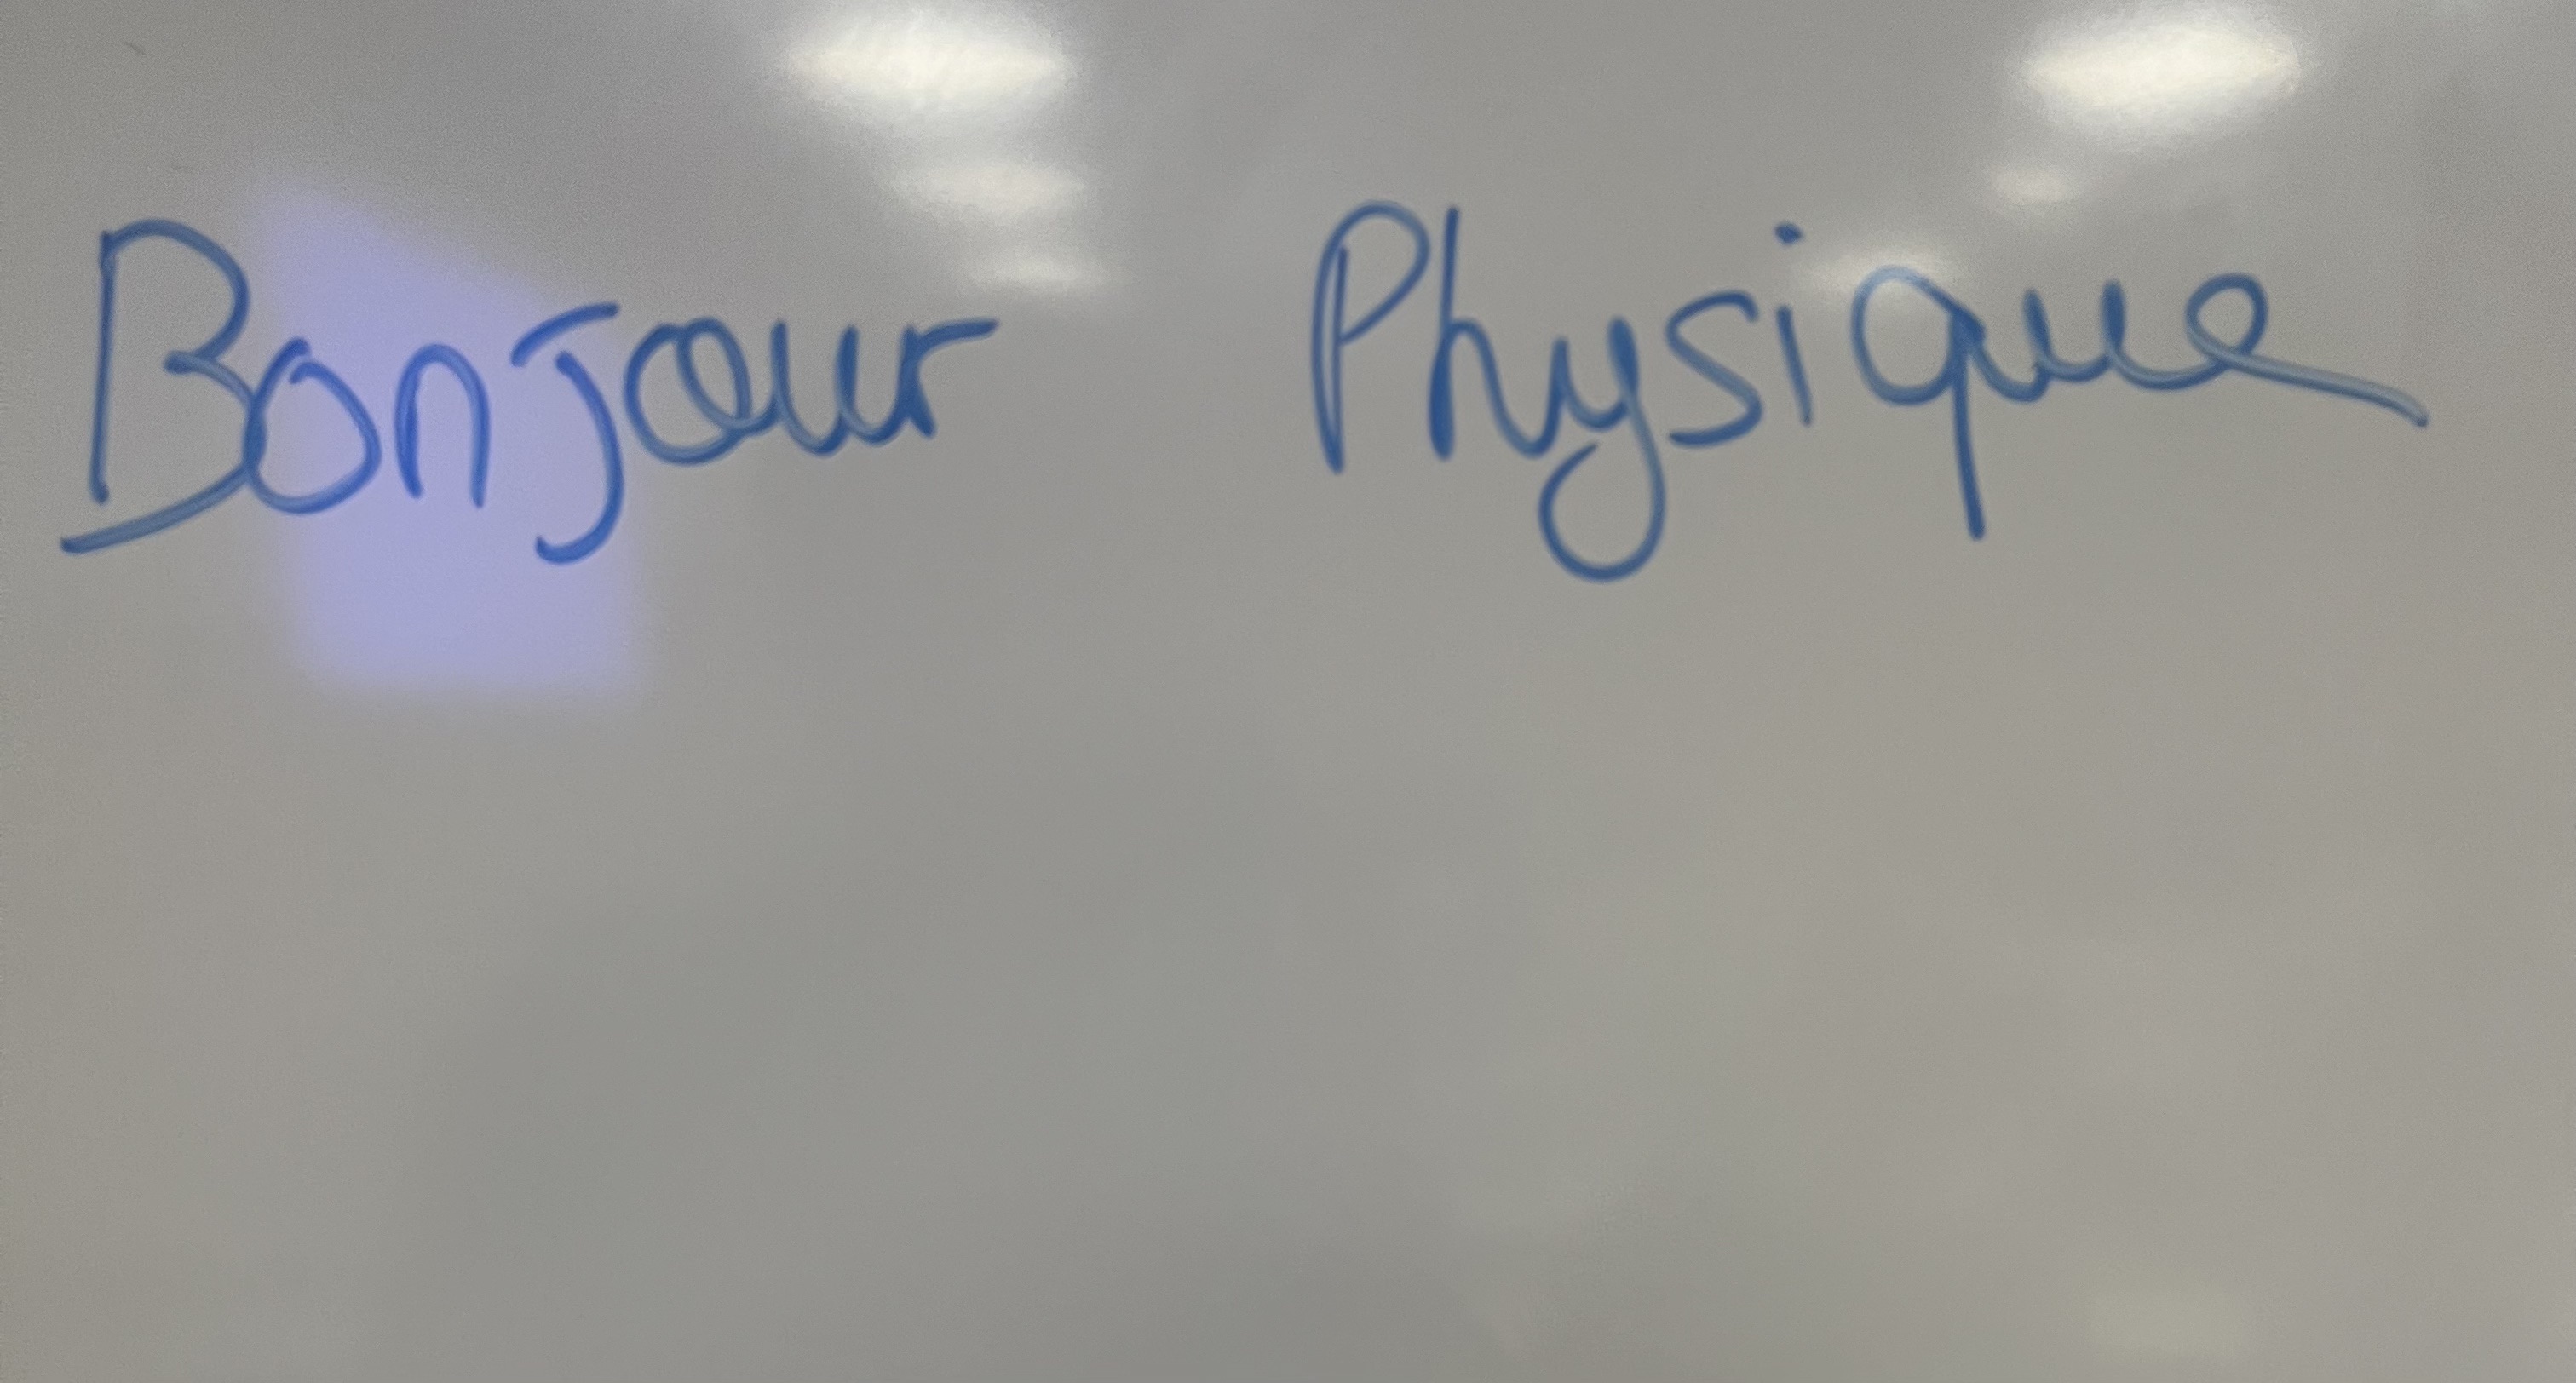 Bonjour Physique